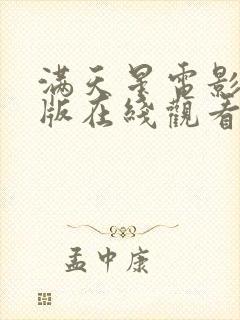 滿天星電影
版在綫觀看
孟中康